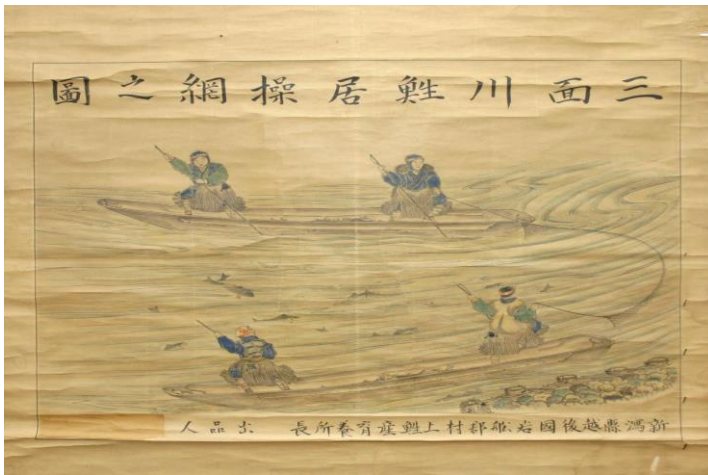 三面川鮏居操網之圖
新潟縣越後國岩船郡村上鮏産育養所長　出品人